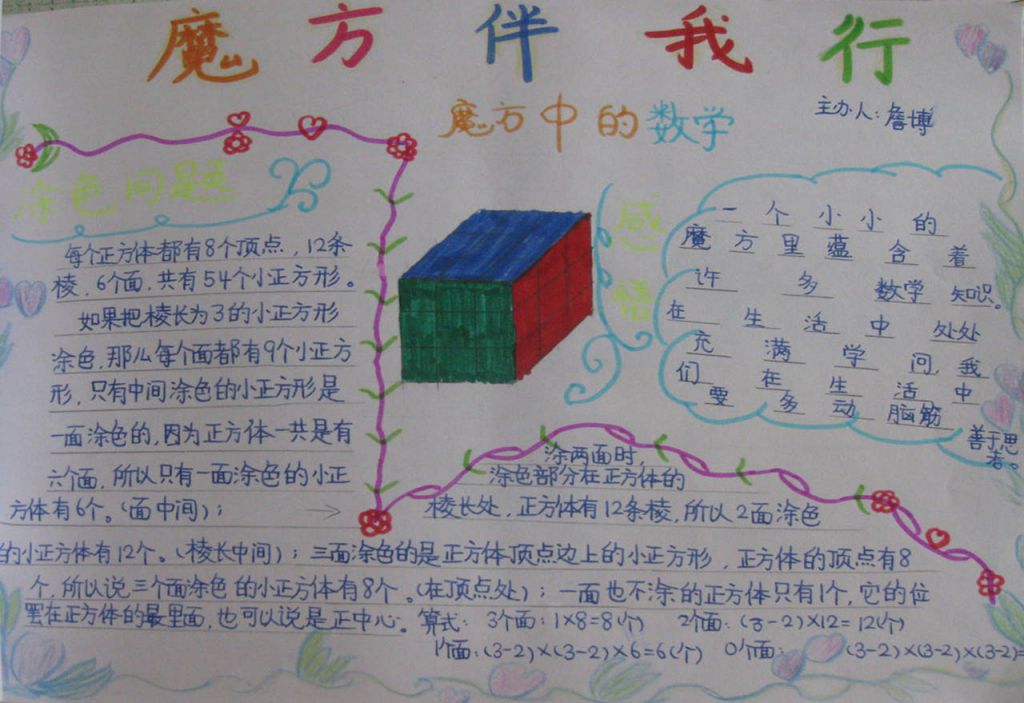 魔方伴我行
魔方中的数学
主办人:詹博
涂色问题
每个正方体都有8个顶点,12条
棱,6个面,共有54个小正方形。
如果把棱长为3的小正方形
涂色,那么每个面都有9个小正方
形,只有中间涂色的小正方形是
一面涂色的,因为正方体一共是有
六个面,所以只有一面涂色的小正
方体有6个。(面中间);
涂两面时,
涂色部分在正方体的
棱长处,正方体有12条棱,所以2面涂色
的小正方体有12个。(棱长中间);三面涂色的是正方体顶点边上的小正方形,正方体的顶点有8
个,所以说三个面涂色的小正方体有8个。(在顶点处);一面也不涂的正方体只有1个,它的位
置在正方体的最里面,也可以说是正中心。算式:3个面:1×8=8(个) 2个面:(3-2)×12=12(个)
1个面:(3-2)×(3-2)×6=6(个) 0个面: (3-2)×(3-2)×(3-2)=
感悟
一个小小的
魔方里蕴含着
许多数学知识。
在生活中处处
充满学问,我
们在生活中
要多动脑筋
善于思
考。